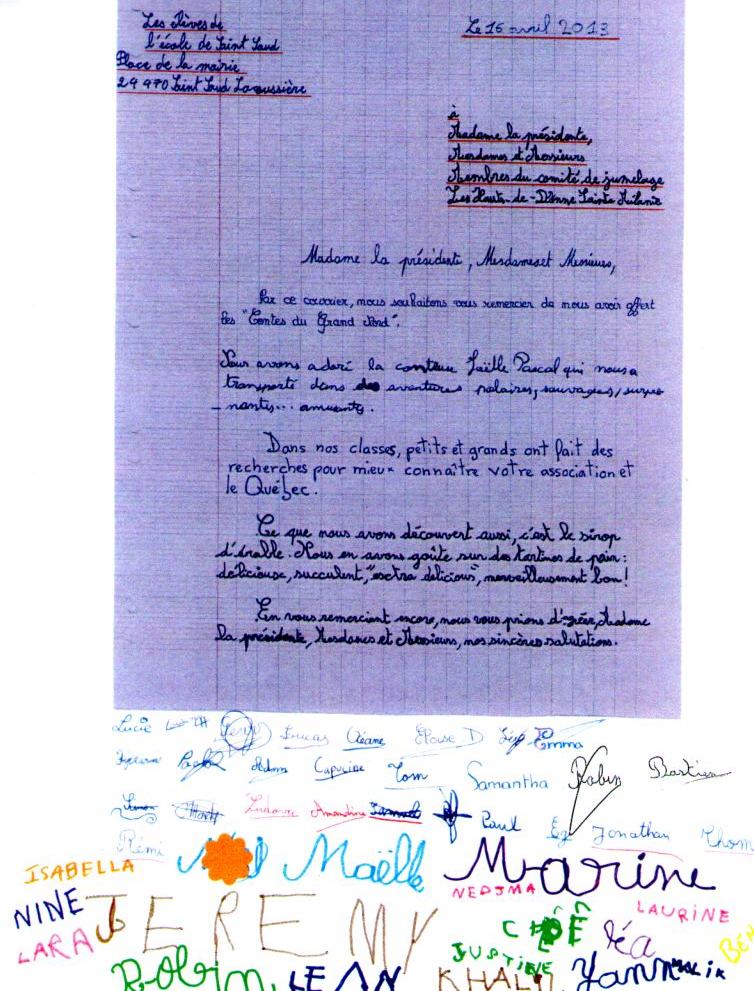 Les élèves de
l'école de Saint Saud
Place de la mairie
24 470 Saint Saud Lacoussière
Le 16 avril 2013
à
Madame la présidente,
Mesdames et Messieurs
Membres du comité de jumelage
Les Hauts-de- Sainte Mélanie
Madame la présidente, Mesdames et Messieurs,
Par ce courrier, nous souhaitons vous remercier de nous avoir offert
les "Contes du Grand Nord".
Nous avons adoré la conteuse Pascal qui nous a
transporté dans des aventures polaires, sauvages, surpre
-nantes... amusantes.
Dans nos classes, petits et grands ont fait des
recherches pour mieux connaître votre association et
le Québec.
Ce que nous avons découvert aussi, c'est le sirop
d'érable. Nous en avons goûté sur des tartines de pain :
délicieuse, succulent, "extra delicious", merveilleusement bon!
En vous remerciant encore, nous vous prions d'agréer, Madame
la présidente, Mesdames et Messieurs, nos sincères salutations.
Lucie Lucas Océane Elouse D Emma
Adam Capucine Tom Samantha Robin Bastien
Ludovic Amandine Paul Jonathan Thom
Rémi Maëlle Marine
ISABELLA
NEDJMA
NINE JEREMY LAURINE
LARA CHLOÉ Léa BEN
JUSTINE
Robin LEAN KHALI Yann MALIK